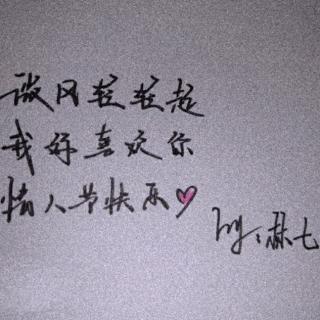 微风轻轻起
我好喜欢你
情人节快乐
by:琳七